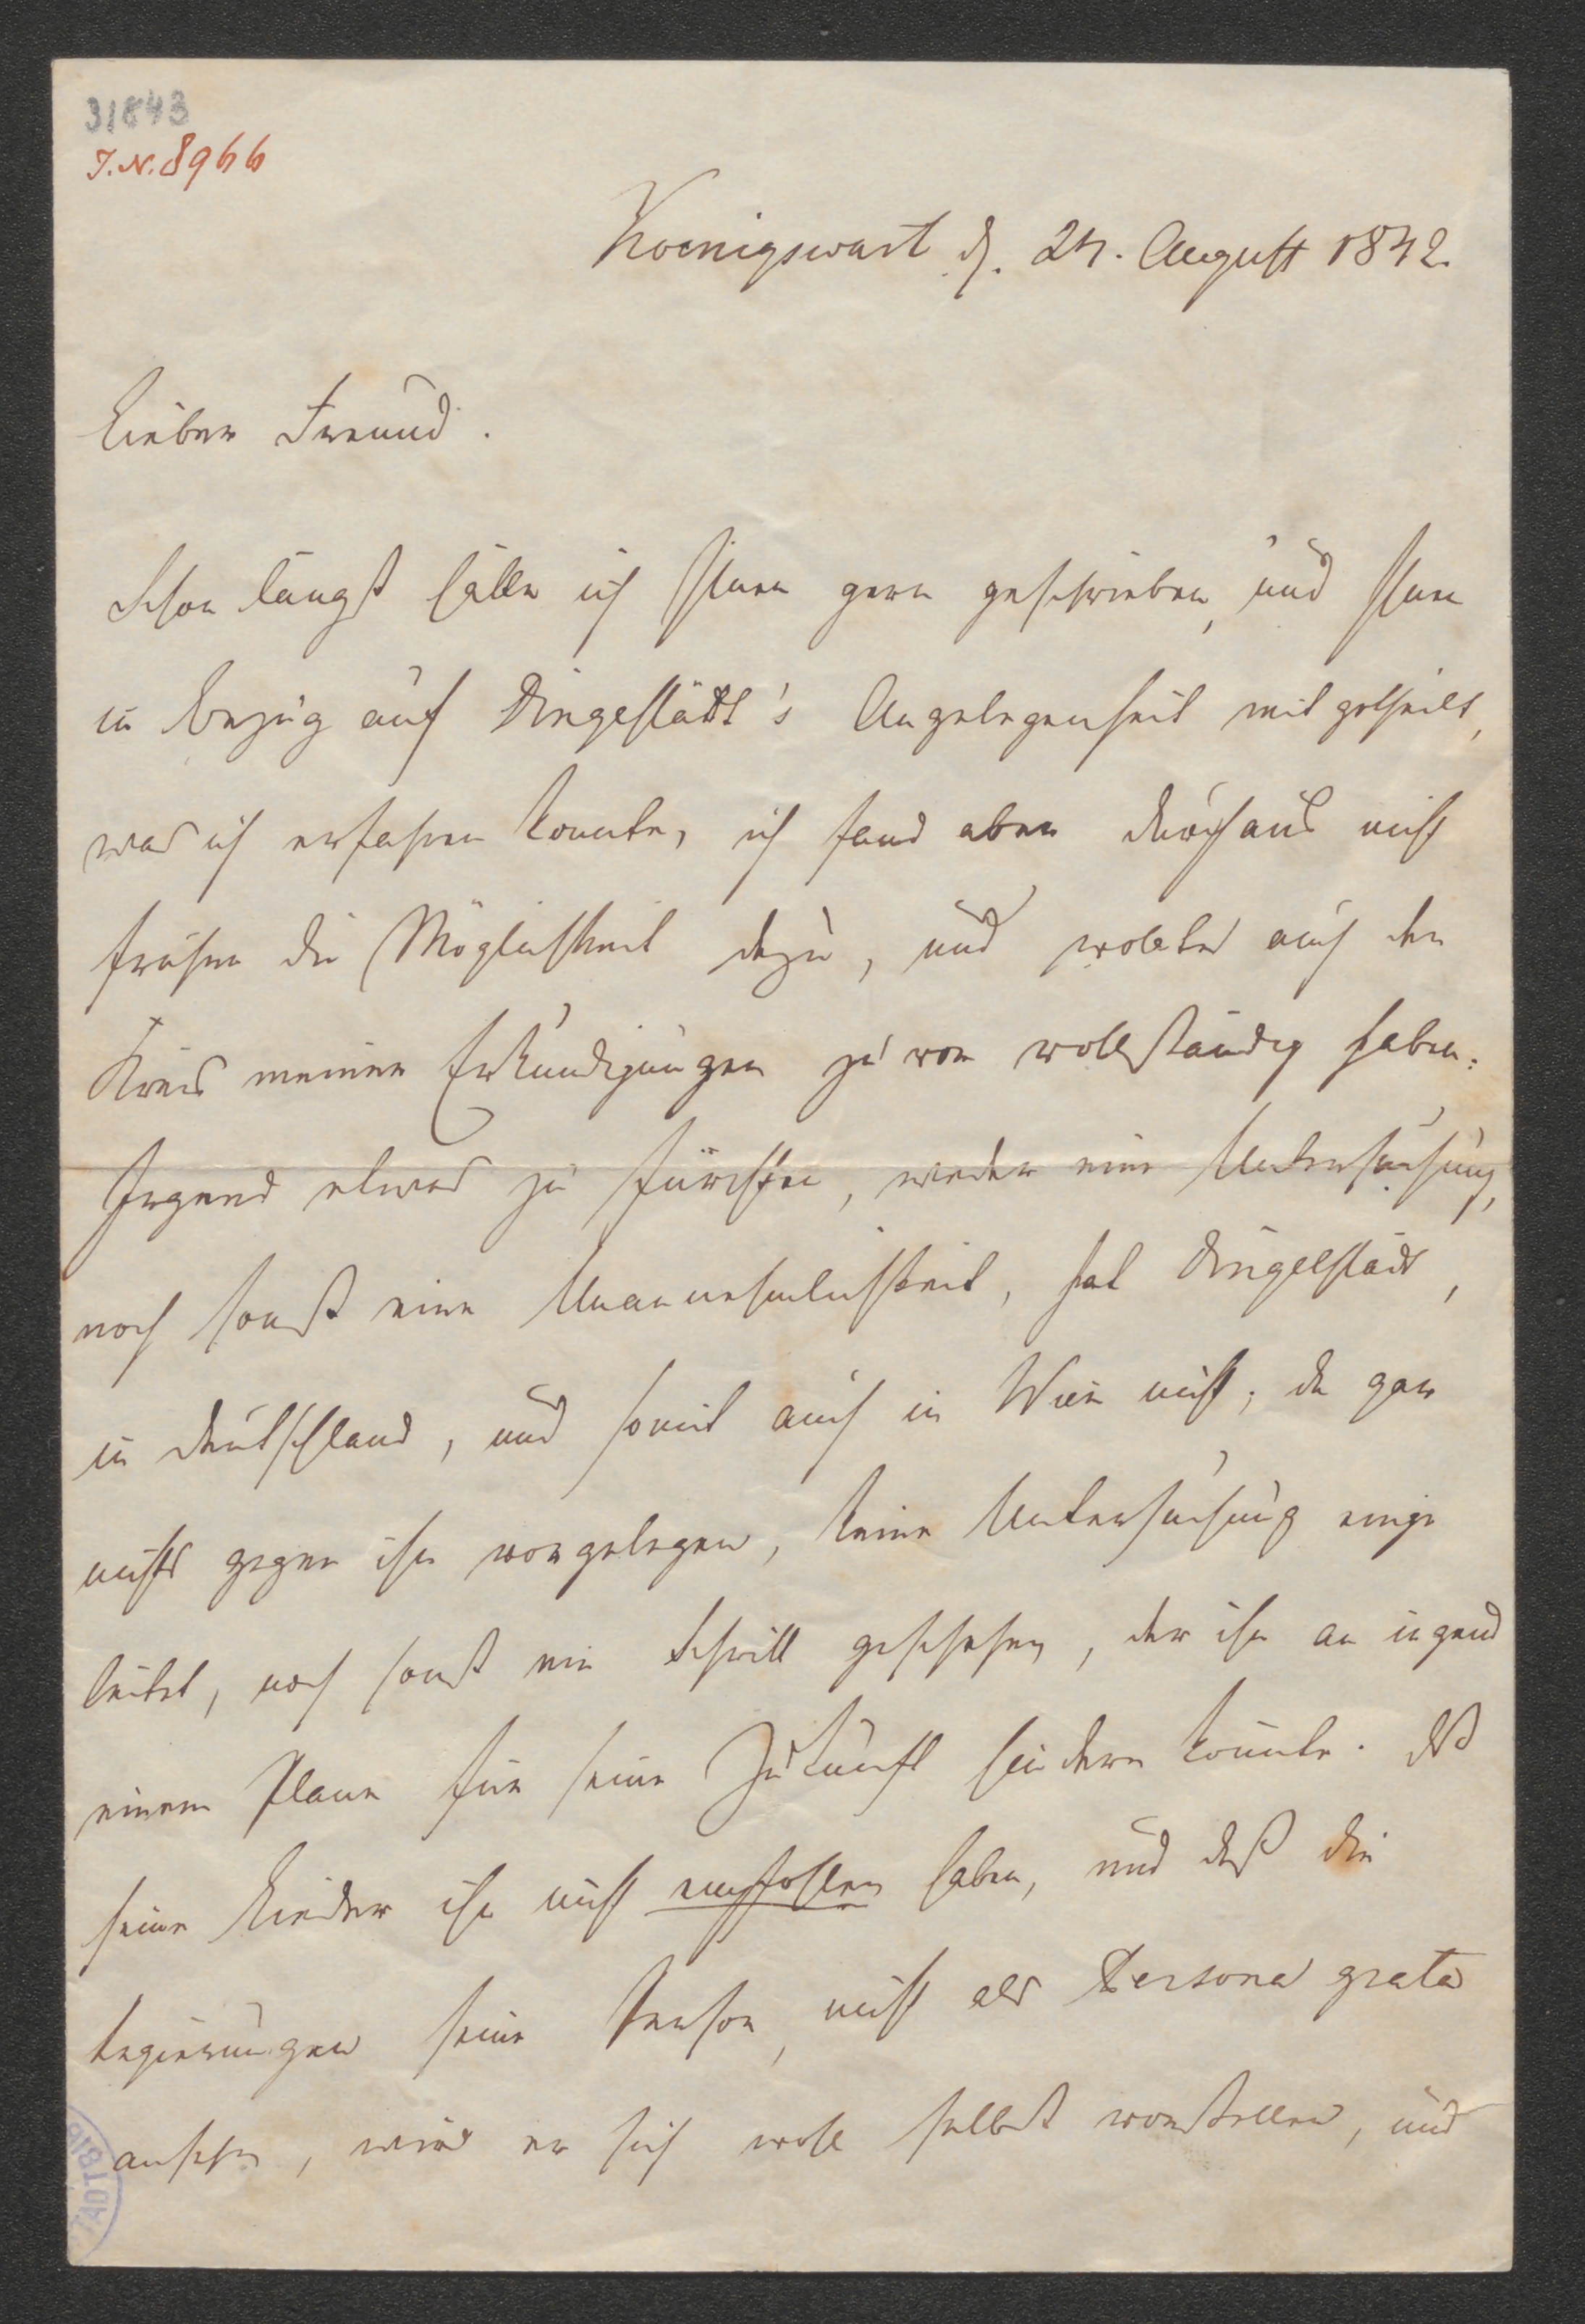 31843
I.N. 8966
Koenigswart d. 24. August 1842.
Lieber Freund.
Schon längst hätte ich Ihnen gern geschrieben, und Ihnen
in Bezug auf Dingelstädt's Angelegenheit mitgetheilt,
was ich erfahren konnte, ich fand aber durchaus nicht
früher die Möglichkeit dazu, und wollte auch den
Kreis meiner Erkundigungen zuvor vollständig haben.
Irgend etwas zu fürchten, weder eine Untersuchung,
noch sonst eine Unannehmlichkeit, hat Dingelstädt,
in Deutschland, und somit auch in Wien nicht; da gar
nichts gegen ihn vorgelegen, keine Untersuchung einge
leitet, noch sonst ein Schritt geschehen, der ihn an irgend
einem Plane für seine Zukunft hindern könnte. Daß
seine Lieder ihn nicht empfohlen haben, und daß die
Regierungen seine Person, nicht als Persona grata
ansehen, wird er sich wohl selbst vorstellen, und